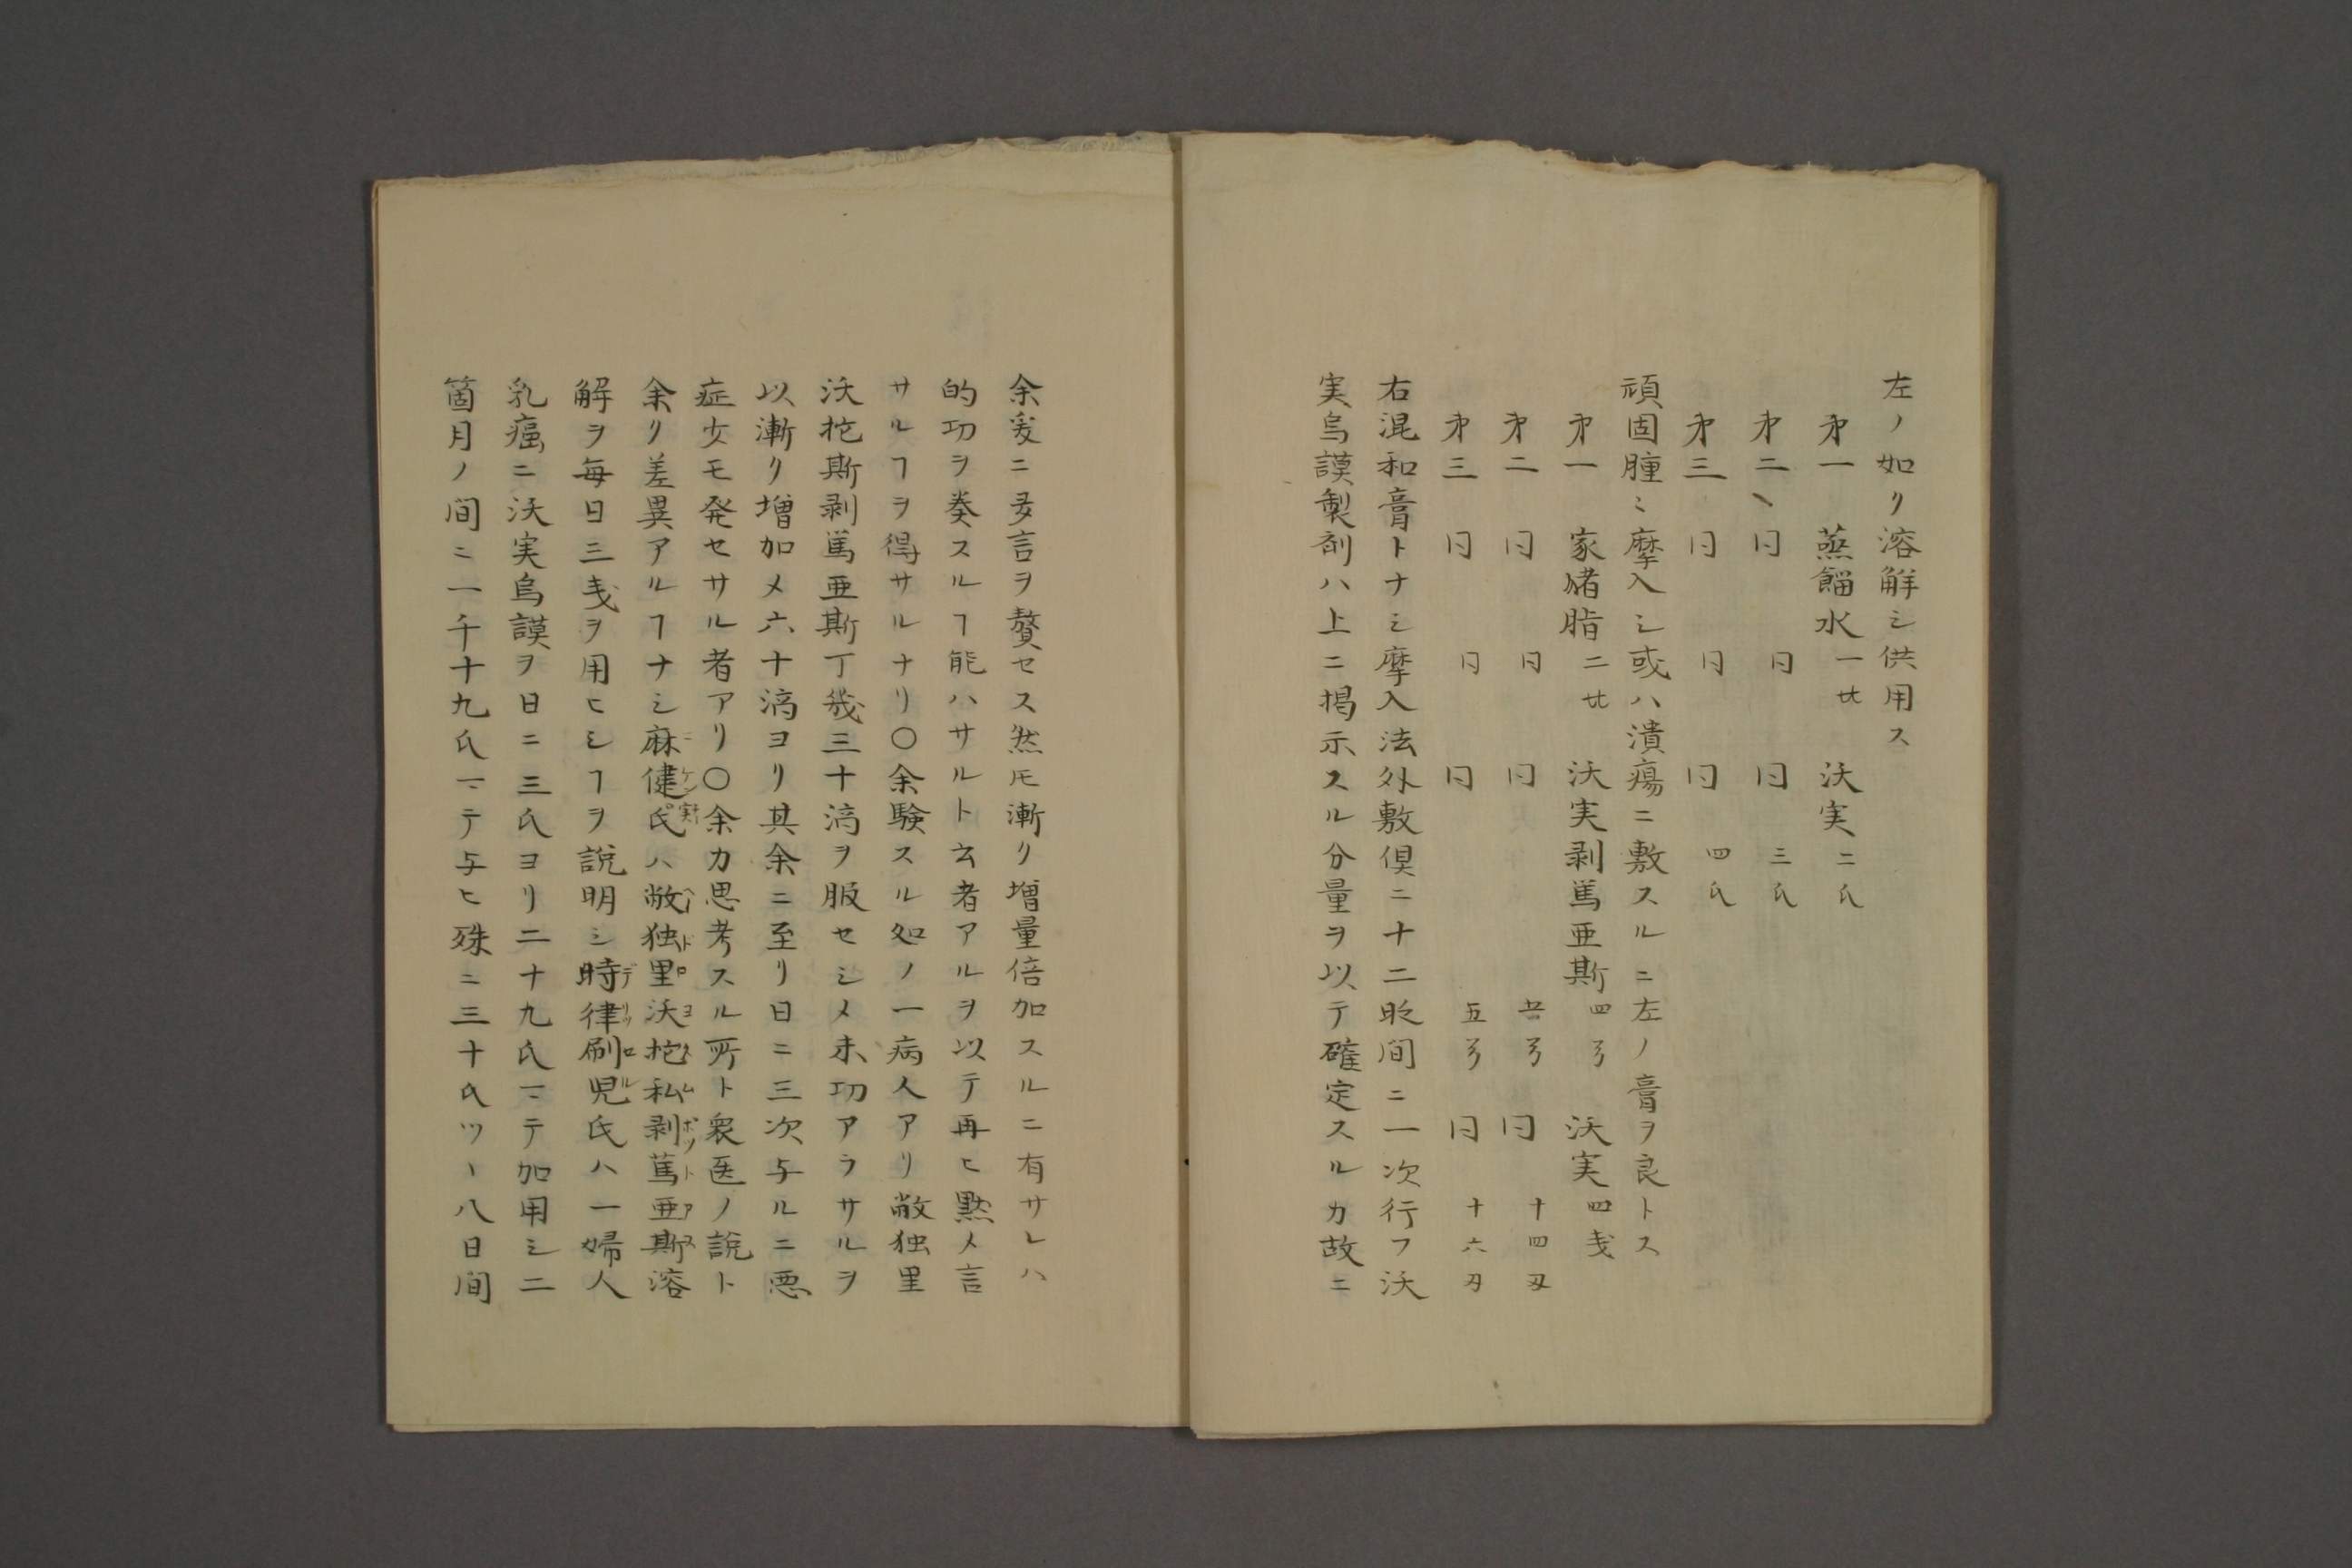 左ノ如ク溶解シ供用ス
才一 蒸餾水 一 沃実 二氏
才二 同 同 同 三氏
才三 同 同 同 四氏
頑固腫ニ摩入シ或ハ潰瘍ニ敷スルニ左ノ膏ヲ良トス
才一 家猪脂 二 沃実剥篤亜斯 四 沃実 四戔
才二 同 同 同 同 十四
才三 同 同 同 五 同 十六
右混和膏トナシ摩入法外敷倶ニ十二時間ニ一次行フ沃
実烏謨製剤ハ上ニ掲示スル分量ヲ以テ確定スルカ故ニ
余爰ニ多言ヲ贅セス然𪜈漸ク増量倍加スルニ有サレハ
的功ヲ奏スルヿ能ハサルト云者アルヲ以テ再ヒ黙メ言
サルヿヲ得サルナリ〇余験スル処ノ一病人アリ敝独里
沃抡斯剥篤亜斯丁幾三十滴ヲ服セシメ未功アラサルヲ
以漸ク増加メ六十滴ヨリ其余ニ至リ日ニ三次与ルニ悪
症少モ発セサル者アリ〇余カ思考スル所ト衆医ノ説ト
余リ差異アルヿナシ麻健氏ハ敝独里沃抡私剥篤亜斯溶
解ヲ毎日三戔ヲ用ヒシヿヲ説明シ時律刷児氏ハ一婦人
乳癌ニ沃実烏謨ヲ日ニ三氏ヨリ二十九氏マテ加用シ二
箇月ノ間ニ一千十九氏マテ与ヒ殊ニ三十氏ツヽ八日間